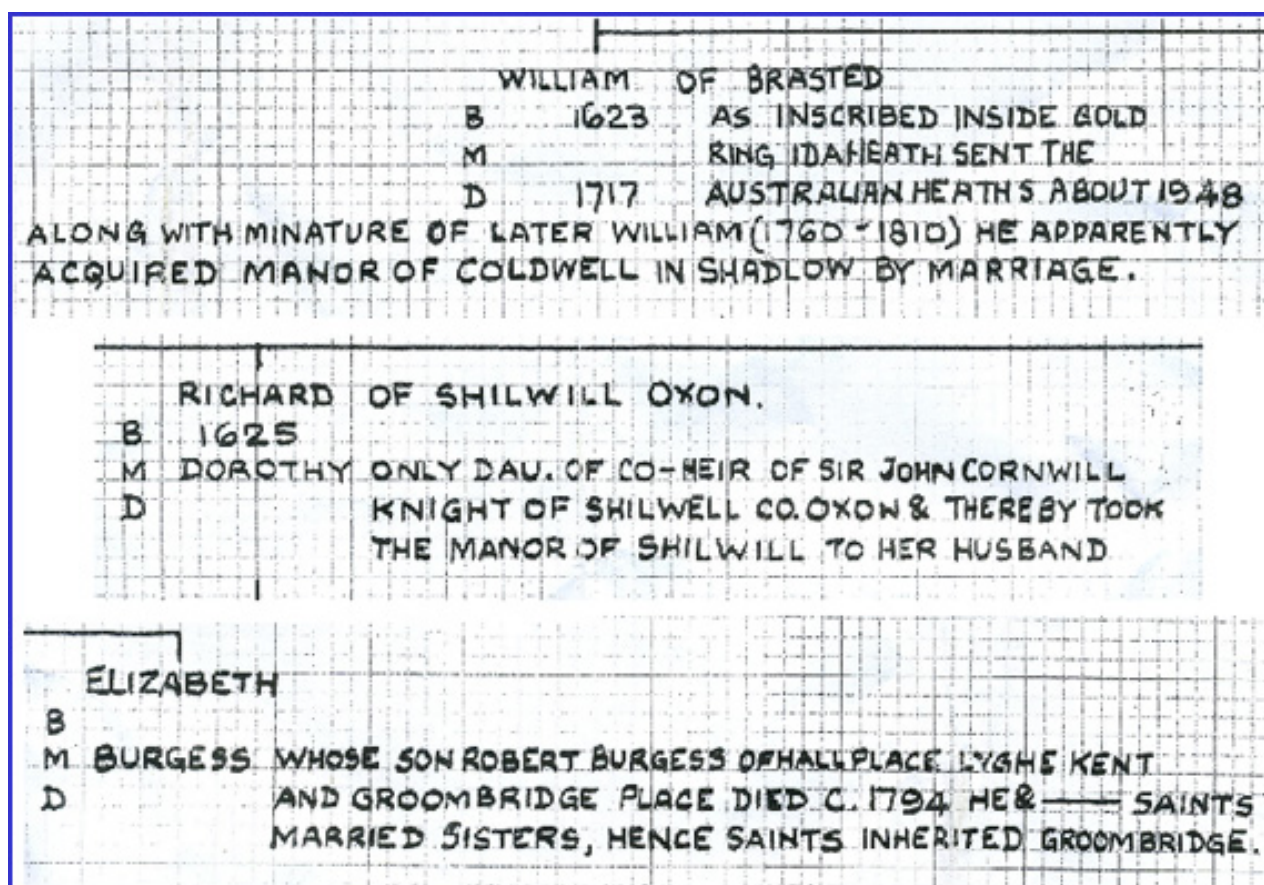 WILLIAM OF BRASTED
B 1623 AS INSCRIBED INSIDE GOLD
M RING IDA HEATH SENT THE
D 1717 AUSTRALIAN HEATHS ABOUT 1948
ALONG WITH MINATURE OF LATER WILLIAM (1760-1810) HE APPARENTLY
ACQUIRED MANOR OF COLDWELL IN SHADLOW BY MARRIAGE.
RICHARD OF SHILWILL OXON.
B 1625
M DOROTHY ONLY DAU. OF CO-HEIR OF SIR JOHN CORNWILL
D KNIGHT OF SHILWELL CO. OXON & THEREBY TOOK
THE MANOR OF SHILWILL TO HER HUSBAND
ELIZABETH
B
M BURGESS WHOSE SON ROBERT BURGESS OF HALL PLACE LYGHE KENT
D AND GROOMBRIDGE PLACE DIED C. 1794 HE & —— SAINTS
MARRIED SISTERS, HENCE SAINTS INHERITED GROOMBRIDGE.